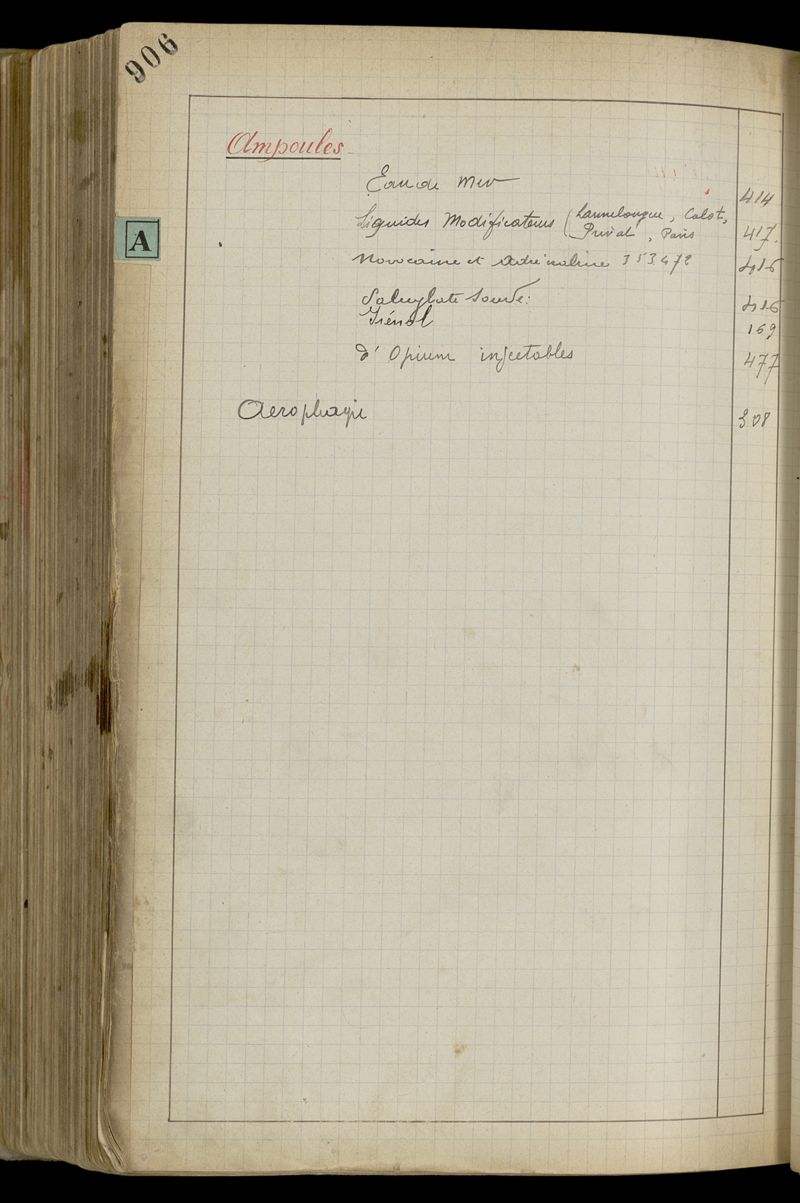 906
A
Ampoules
Eau de Mer 414
Liquides Modificateurs (Lannelongue, Calot,
Privat, Paris 417.
Novocaine et Adrénaline 353 472 416
Salicylate Soude: 416
169
d'Opium injectables 477
Aerophagie 308